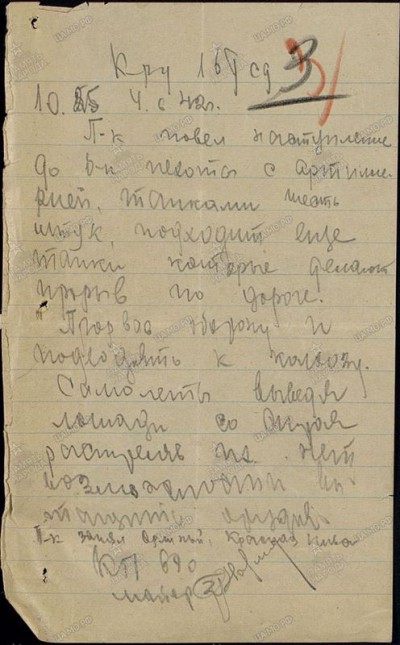 Кру 161 сд 3
10. 25 4. 8. 42г.
П-к повел наступление
до б-н пехоты с артилле-
рией, танками шесть
штук, подходит еще
танки которые делают
прорыв по дороге.
Прорвав оборону и
подходить к колхозу.
Самолеты выведя
лошади со строя
растреляв их. Нет
возможности вы-
тащить орудия.
П-к занял Красная Нива
КП 690
майор